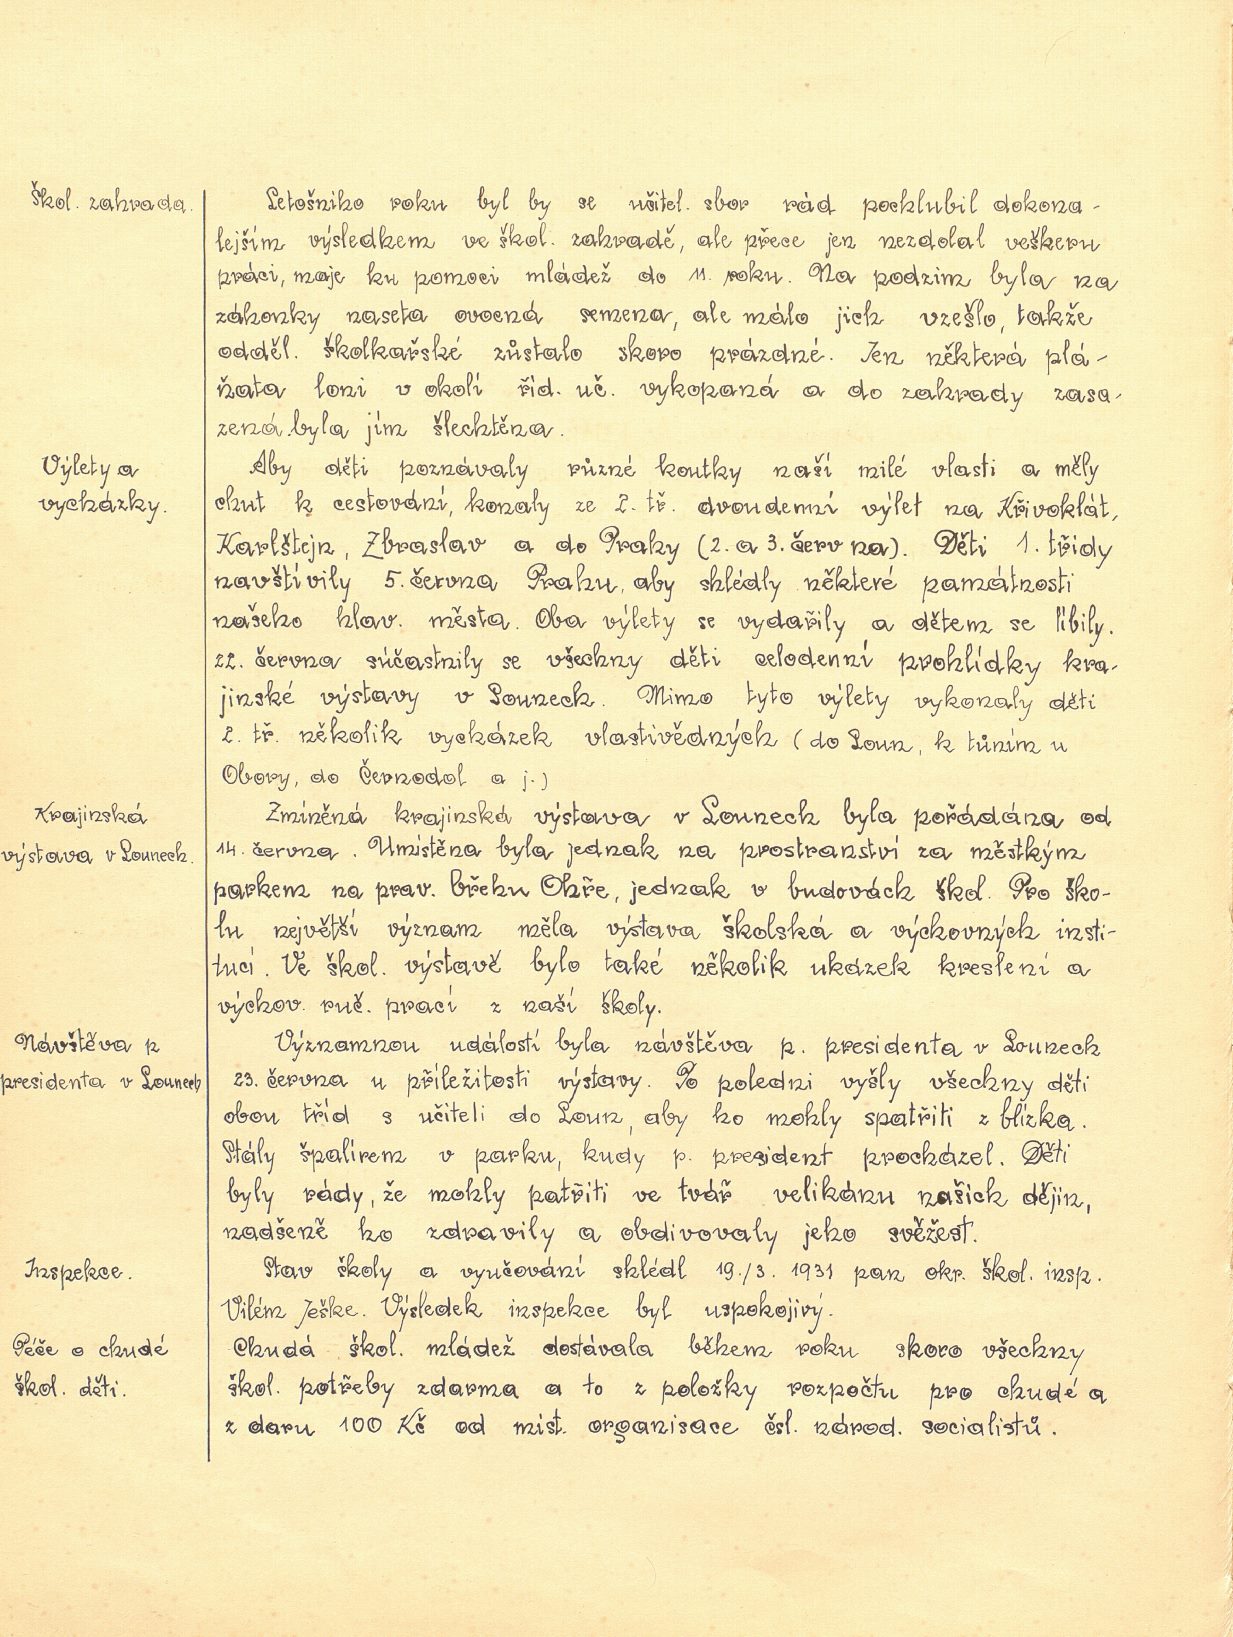 Škol. zahrada.
Letošního roku byl by se učitel. sbor rád pochlubil dokona-
lejším výsledkem ve škol. zahradě, ale přece jen nezdolal veškeru
práci, maje ku pomoci mládež do 11. roku. Na podzim byla na
záhonky naseta ovocná semena, ale málo jich vzešlo, takže
odděl. školkařské zůstalo skoro prázdné. Jen některá plá-
ňata loni v okolí říd. uč. vykopaná a do zahrady zasa-
zená byla jím šlechtěna.
Výlety a
vycházky.
Aby děti poznávaly různé koutky naší milé vlasti a měly
chut k cestování, konaly ze 2. tř. dvoudenní výlet na Křivoklát,
Karlštejn, Zbraslav a do Prahy (2. a 3. června). Děti 1. třídy
navštívily 5. června Prahu, aby shlédly některé památnosti
našeho hlav. města. Oba výlety se vydařily a dětem se líbily.
22. června súčastnily se všechny děti celodenní prohlídky kra-
jinské výstavy v Lounech. Mimo tyto výlety vykonaly děti
2. tř. několik vycházek vlastivědných (do Loun, k tůním u
Obory, do Černodol a j.)
Krajinská
výstava v Lounech.
Zmíněná krajinská výstava v Lounech byla pořádána od
14. června. Umístěna byla jednak na prostranství za městkým
parkem na prav. břehu Ohře, jednak v budovách škol. Pro ško-
lu největší význam měla výstava školská a výchovných insti-
tucí. Ve škol. výstavě bylo také několik ukázek kreslení a
výchov. ruč. prací z naší školy.
Návštěva p
presidenta v Lounech
Významnou událostí byla návštěva p. presidenta v Lounech
23. června u příležitosti výstavy. Po poledni vyšly všechny děti
obou tříd s učiteli do Loun, aby ho mohly spatřiti z blízka.
Stály špalírem v parku, kudy p. president procházel. Děti
byly rády, že mohly patřiti ve tvář velikánu našich dějin,
nadšeně ho zdravily a obdivovaly jeho svěžest.
Inspekce.
Stav školy a vyučování shlédl 19./3. 1931 pan okr. škol. insp.
Vilém Ješke. Výsledek inspekce byl uspokojivý.
Péče o chudé
škol. děti.
Chudá škol. mládež dostávala během roku skoro všechny
škol. potřeby zdarma a to z položky rozpočtu pro chudé a
z daru 100 Kč od míst. organisace čsl. národ. socialistů.